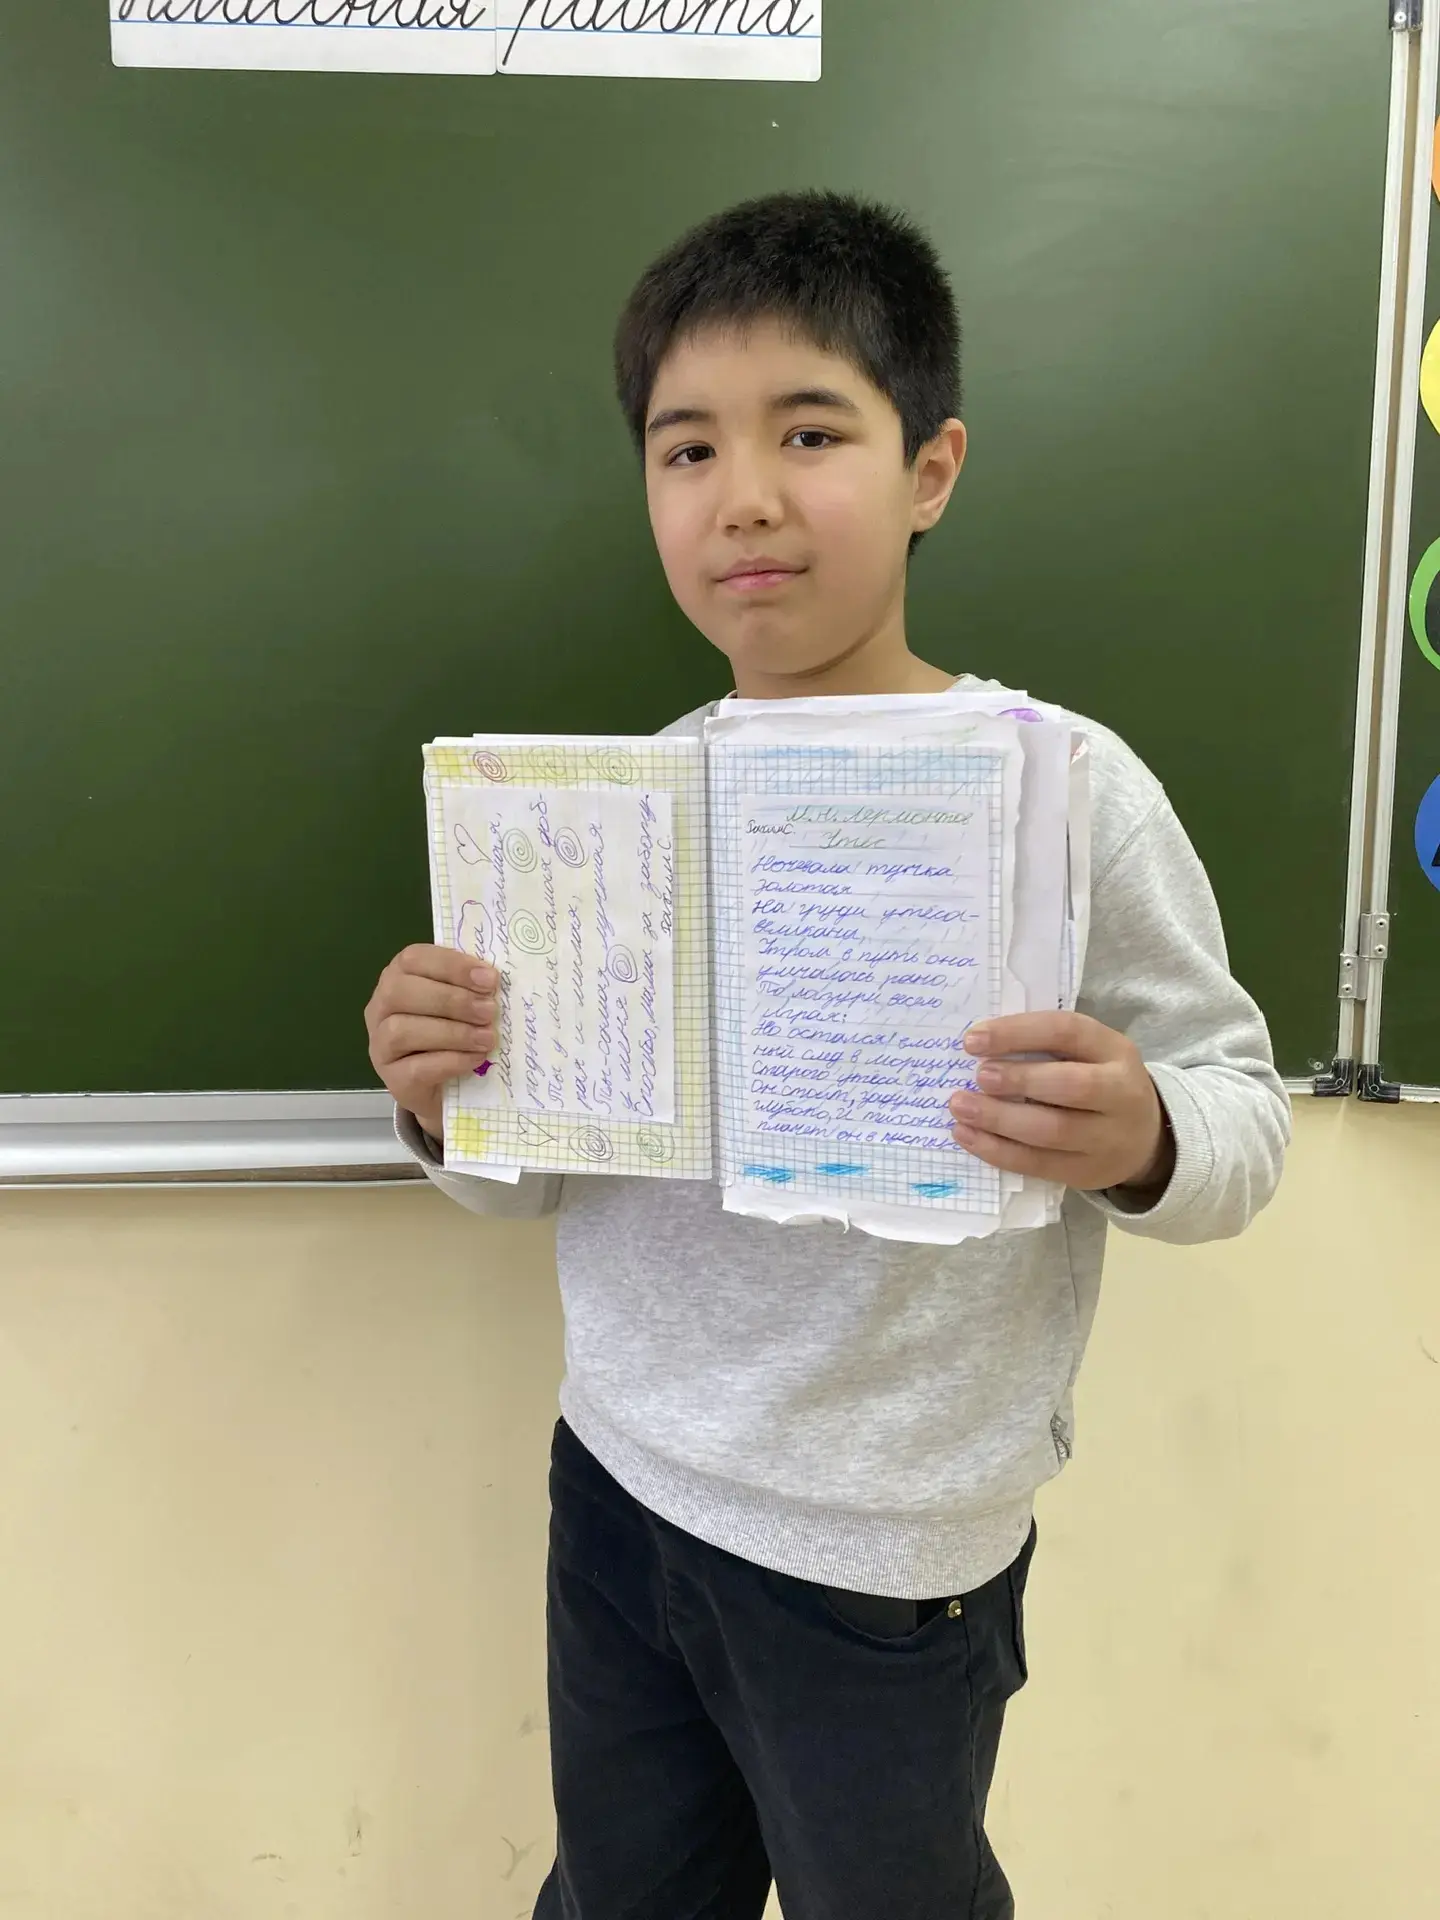 классная работа
мамочка, любимая,
родная,
Ты у меня самая доб-
рая и милая,
Ты-самая лучшая
у меня
Спасибо, мама за заботу.
М.Н. Лермонтов
Утёс
Ночевала тучка
золотая
На груди утёса-
великана,
Утром в путь она
умчалась рано,
По лазури весело
играя:
Но остался влаж
ный след в морщине
Старого утёса Одинок
Он стоит, задумал
глубоко, и тихоньк
плачет он в пустын